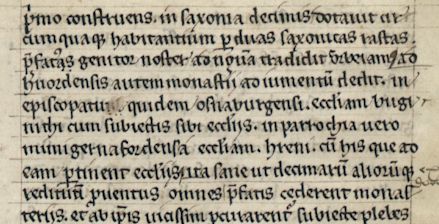 p̄mo construens. in saxonia decimis dotauit cir
cumquaq; habitantium p̱ duas saxonicas rastas.
p̄fatus genitor noster ad usū
tradidit
herifordensis autem monasterii ad iumentū dedit. in
episcopatu quidem osnaburgensi. eccl̄iam bugi
nithi cum subiectis sibi eccl̄iis. in parrochia uero
mimigernafordensa eccl̄iam. hreni. cū his que ad
eam p̱tinent eccl̄iis. ita sane ut decimarū aliorūq;
reddituū p̱uentus omnes p̄fatis cederent monas
teriis. et ab ip̄is uicissim p̱curarent᷑ subiecte plebes